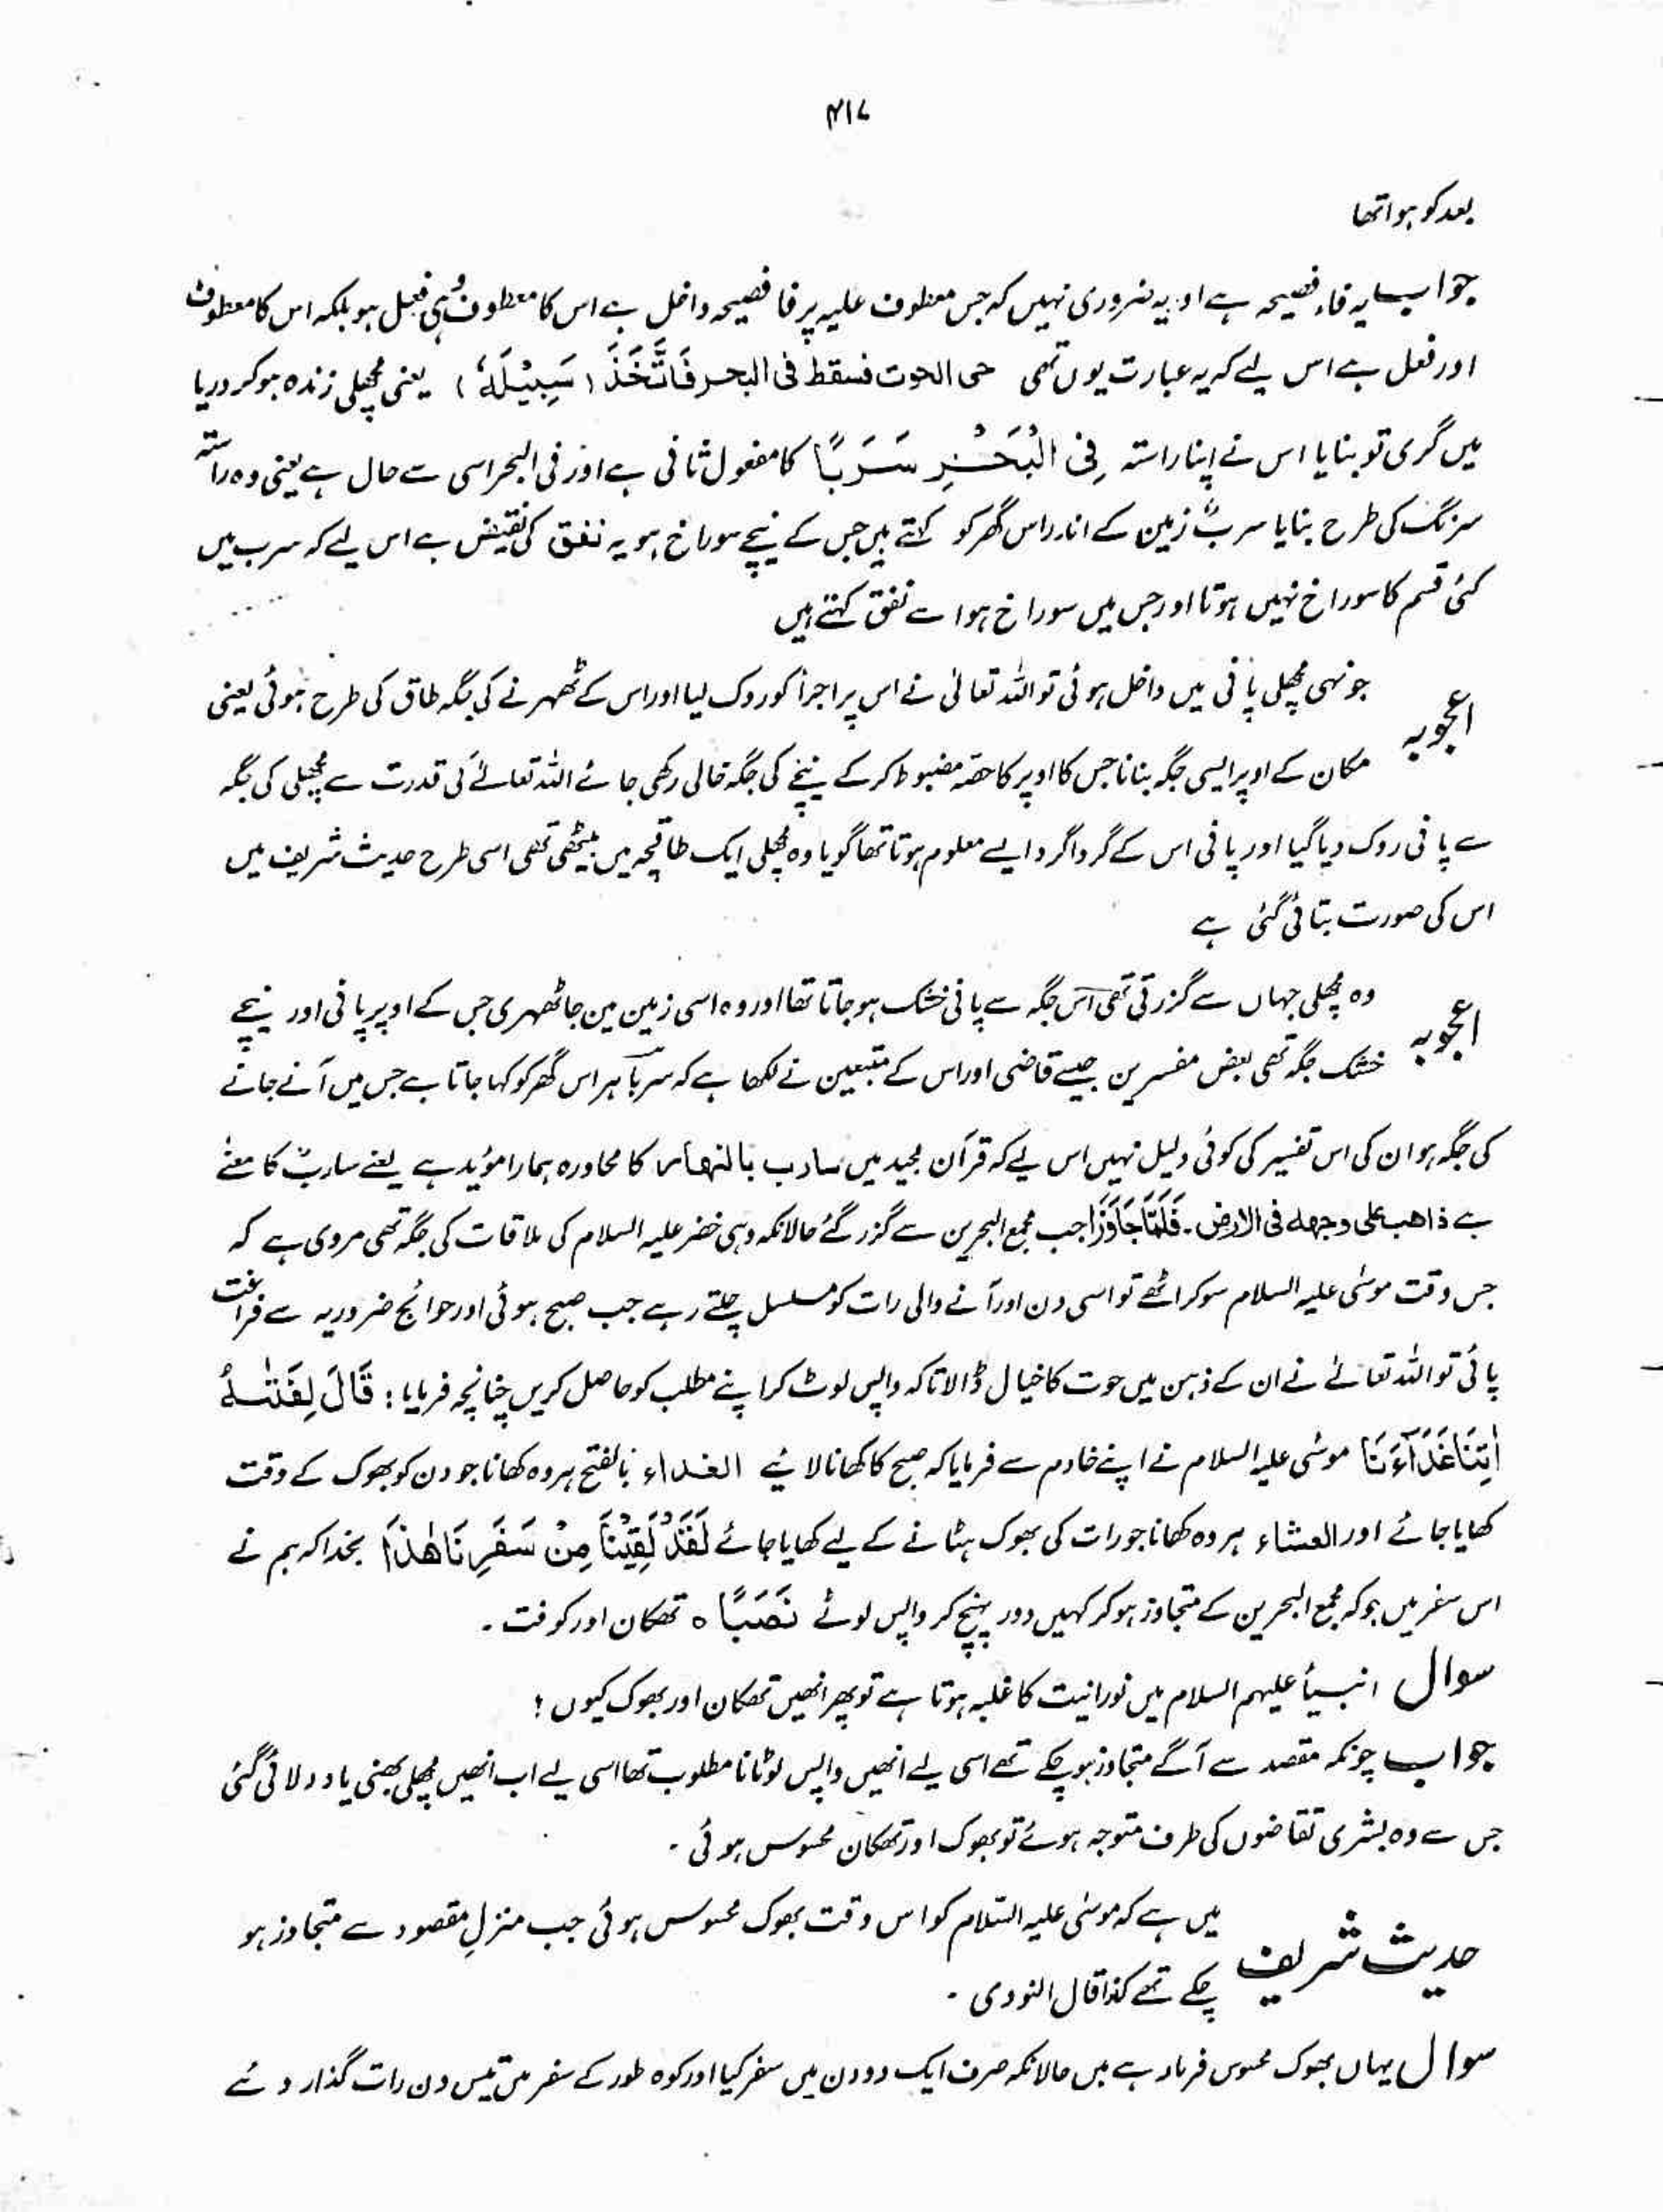 ۴۱۷
بعد کو ہوا تھا
جواب یہ فاء فصیحہ ہے اور یہ ضروری نہیں کہ جس معطوف علیہ پر فا فصیحہ داخل ہے اس کا معطوف وہی فعل ہو بلکہ اس کا معطوف
اور فعل ہے اس لیے کہ یہ عبارت یوں تھی حی الحوت فسقط فی البحر فَاتَّخَذَ (سَبِیْلَہٗ) یعنی مچھلی زندہ ہو کر دریا
میں گری تو بنایا اس نے اپنا راستہ فِی الْبَحْرِ سَرَبًا کا مفعول ثانی ہے اور فی البحر اسی سے حال ہے یعنی وہ راستہ
سرنگ کی طرح بنایا سربٌ زمین کے اندر اس گھر کو کہتے ہیں جس کے نیچے سوراخ ہو یہ نفق کی نقیض ہے اس لیے کہ سرب میں
کئی قسم کا سوراخ نہیں ہوتا اور جس میں سوراخ ہو اسے نفق کہتے ہیں
اعجوبہ جونہی مچھلی پانی میں داخل ہوئی تو اللہ تعالیٰ نے اس پر اجرأ کو روک لیا اور اس کے ٹھہرنے کی جگہ طاق کی طرح ہوئی یعنی
مکان کے اوپر ایسی جگہ بنانا جس کا اوپر کا حصّہ مضبوط کر کے نیچے کی جگہ خالی رکھی جائے اللہ تعالےٰ کی قدرت سے مچھلی کی جگہ
سے پانی روک دیا گیا اور پانی اس کے گردا گرد ایسے معلوم ہوتا تھا گویا وہ مچھلی ایک طاقچہ میں بیٹھی تھی اسی طرح حدیث شریف میں
اس کی صورت بتائی گئی ہے
اعجوبہ وہ مچھلی جہاں سے گزرتی تھی اس جگہ سے پانی خشک ہو جاتا تھا اور وہ اسی زمین مین جا ٹھہری جس کے اوپر پانی اور نیچے
خشک جگہ تھی بعض مفسرین جیسے قاضی اور اس کے متبعین نے لکھا ہے کہ سرباً ہر اس گھر کو کہا جاتا ہے جس میں آنے جانے
کی جگہ ہو ان کی اس تفسیر کی کوئی دلیل نہیں اس لیے کہ قرآن مجید میں سارب بالنھار کا محاورہ ہمارا مؤید ہے یعنے ساربٌ کا معنےٰ
ہے ذاھب علی وجھہ فی الارض۔ فَلَمَّا جَاوَزَا جب مجمع البحرین سے گزر گئے حالانکہ وہی خضر علیہ السلام کی ملاقات کی جگہ تھی مروی ہے کہ
جس وقت موسٰی علیہ السلام سو کر اٹھے تو اسی دن اور آنے والی رات کو مسلسل چلتے رہے جب صبح ہوئی اور حوائج ضروریہ سے فراغت
پائی تو اللہ تعالےٰ نے ان کے ذہن میں حوت کا خیال ڈالا تاکہ واپس لوٹ کر اپنے مطلب کو حاصل کریں چنانچہ فرمایا : قَالَ لِفَتٰىہُ
اٰتِنَا غَدَآءَنَا موسٰی علیہ السلام نے اپنے خادم سے فرمایا کہ صبح کا کھانا لائیے الغداء بالفتح ہر وہ کھانا جو دن کو بھوک کے وقت
کھایا جائے اور العشاء ہر وہ کھانا جو رات کی بھوک ہٹانے کے لیے کھایا جائے لَقَدْ لَقِیْنَا مِنْ سَفَرِنَا ھٰذَا بخدا کہ ہم نے
اس سفر میں جو کہ مجمع البحرین کے متجاوز ہو کر کہیں دور پہنچ کر واپس لوٹے نَصَبًا ہ تھکان اور کوفت ۔
سوال انبیأ علیہم السلام میں نورانیت کا غلبہ ہوتا ہے تو پھر انھیں تھکان اور بھوک کیوں ؟
جواب چونکہ مقصد سے آگے متجاوز ہو چکے تھے اسی لیے انھیں واپس لوٹانا مطلوب تھا اسی لیے اب انھیں مچھلی بھنی یاد دلائی گئی
جس سے وہ بشری تقاضوں کی طرف متوجہ ہوئے تو بھوک اور تھکان محسوس ہوئی ۔
حدیث شریف میں ہے کہ موسٰی علیہ السّلام کو اس وقت بھوک محسوس ہوئی جب منزلِ مقصود سے متجاوز ہو
چکے تھے کذا قال النووی ۔
سوال یہاں بھوک محسوس فرما رہے ہیں حالانکہ صرف ایک دو دن میں سفر کیا اور کوہ طور کے سفر میں تیس دن رات گذار دئے